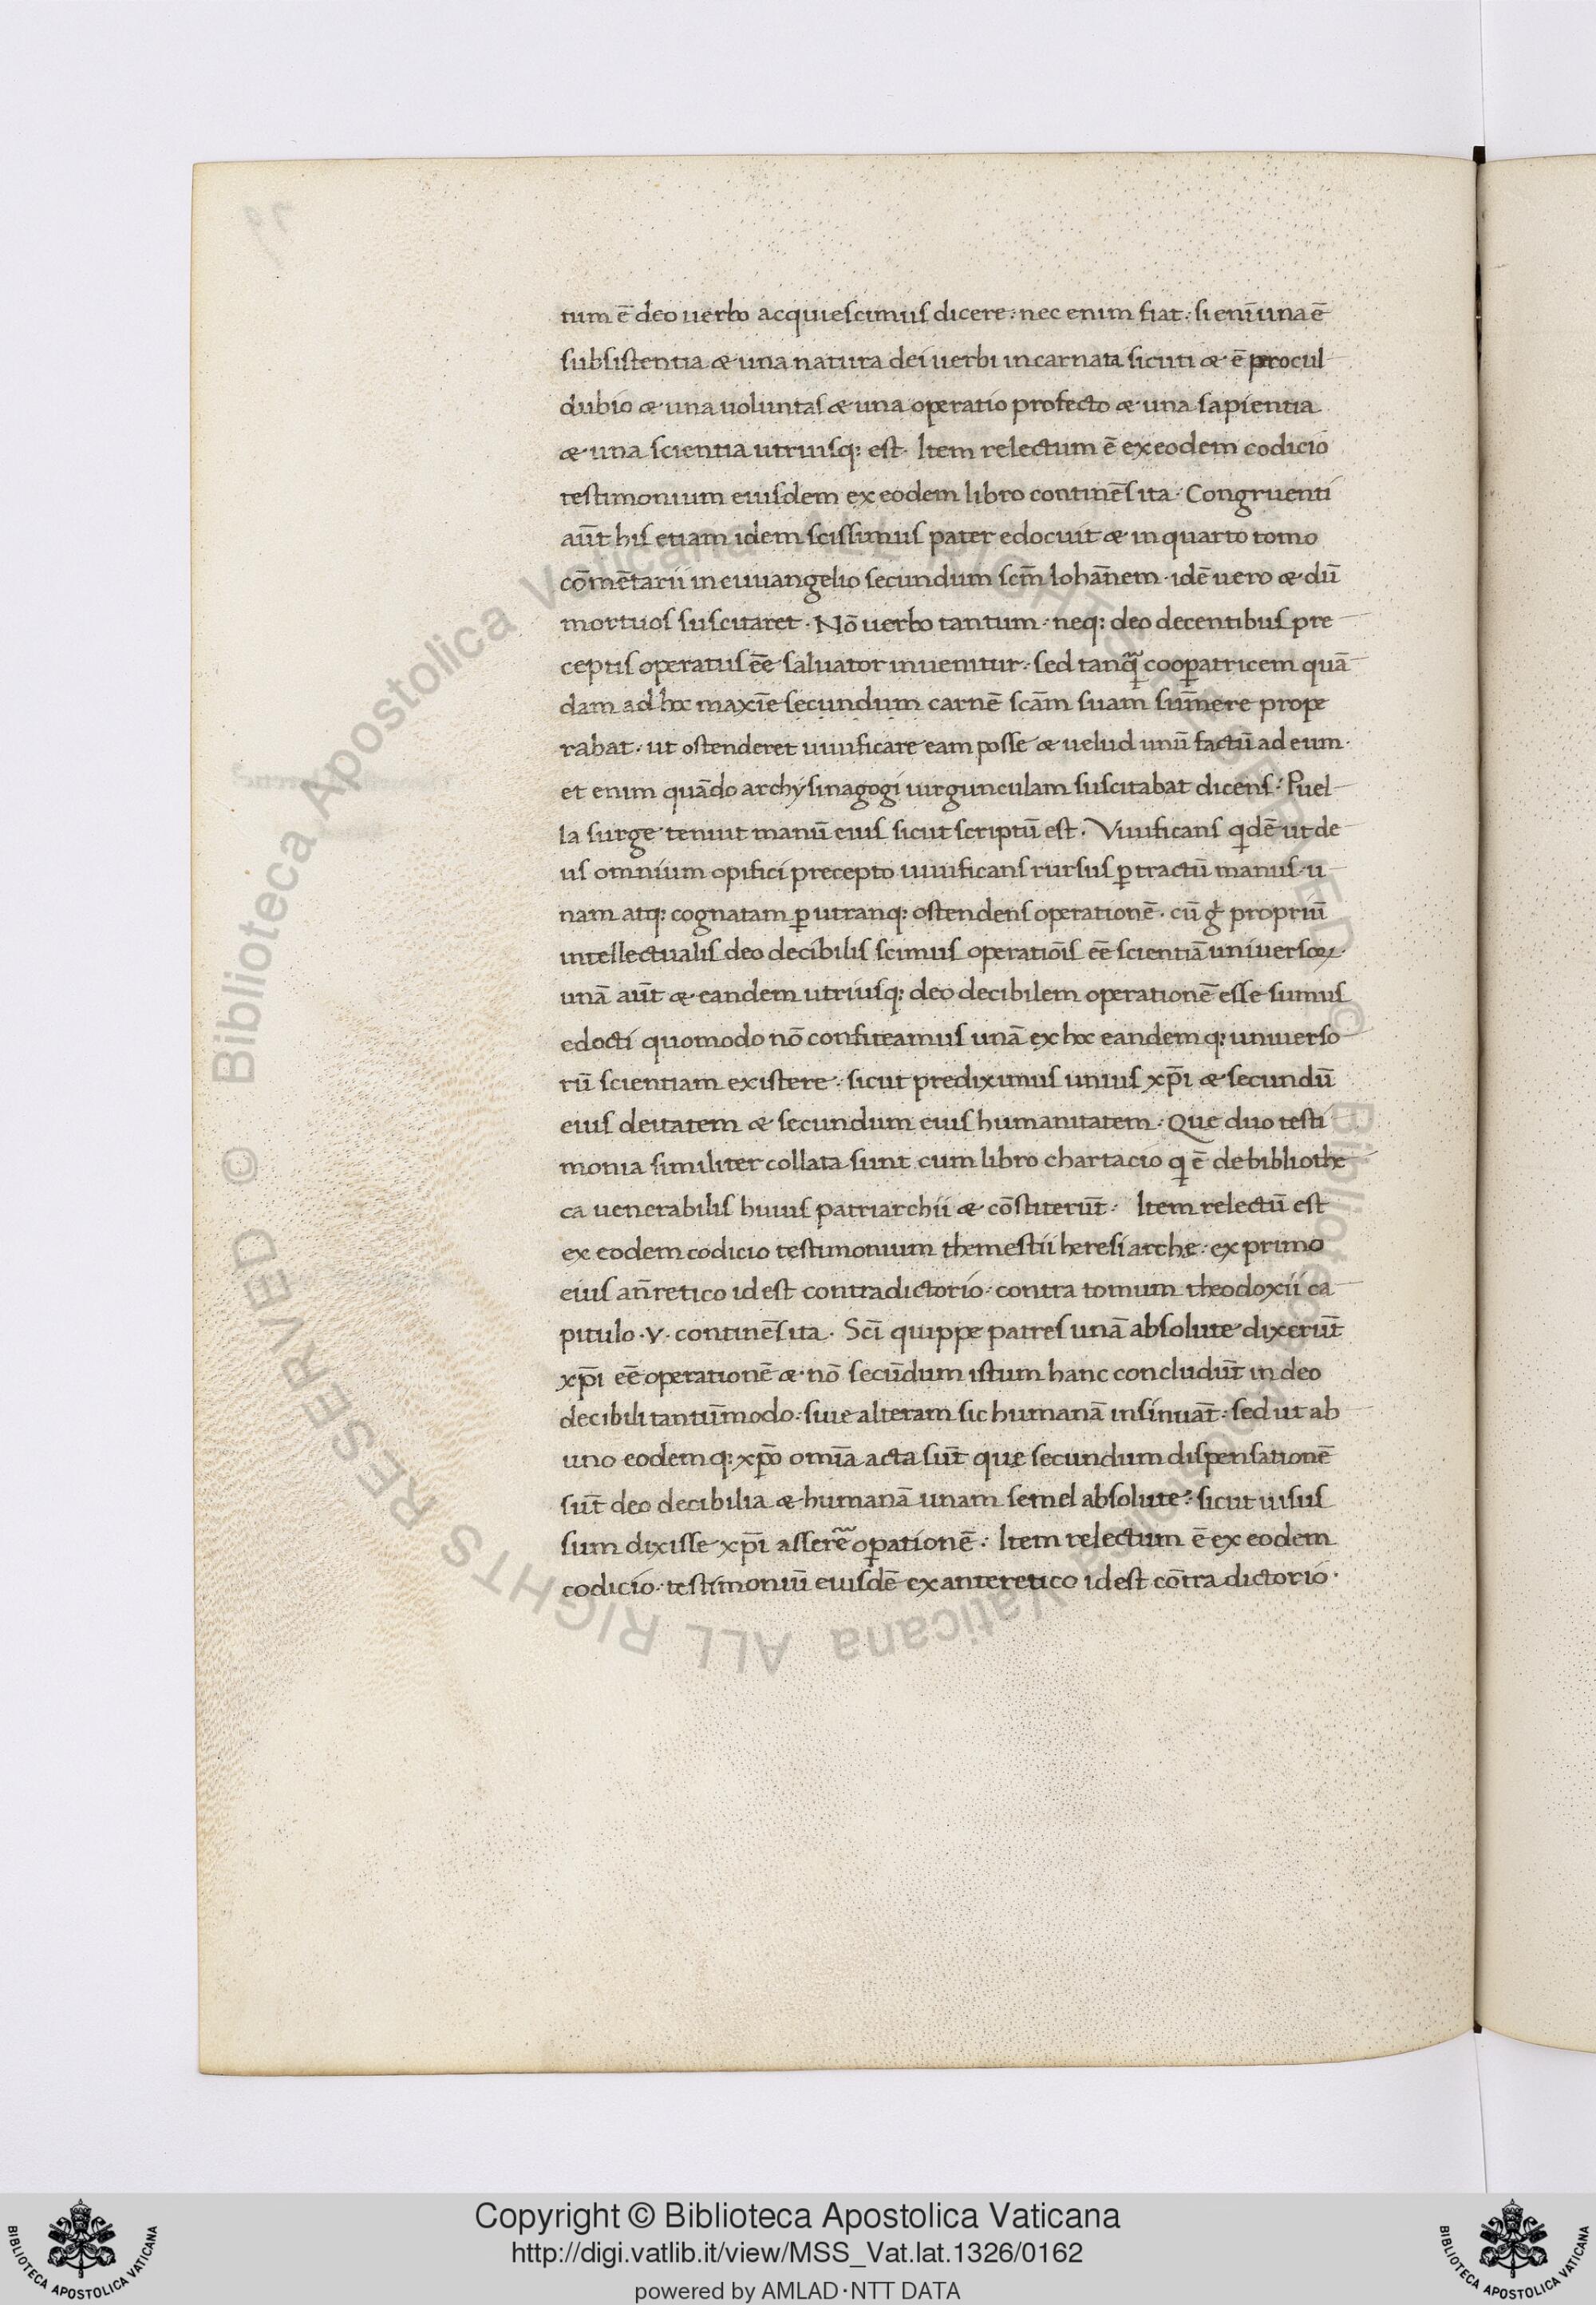 tum ē deo uerbo acquiescimus dicere: nec enim fiat: si enī una ē
subsistentia & una natura dei uerbi incarnata sicuti & ē procul
dubio & una uoluntas & una operatio profecto & una sapientia
& una scientia utriusq: est. Item relectum ē ex eodem codicio
testimonium eiusdem ex eodem libro continēs ita. Congruenti
aūt his etiam idem scissimus pater edocuit & in quarto tomo
cōmētarii in euuangelio secundum scm̄ Iohān̄em. idē uero & dū
mortuos suscitaret. Nō uerbo tantum. neq: deo decentibus pre
ceptis operatus eē saluator inuenitur: sed tanq̄ coop̱atricem quā
dam ad hoc maxīe secundum carnē scām suam sūmere prope
rabat. ut ostenderet uiuificare eam posse & uelud unū factū ad eum.
et enim quādo archysinagogi uirgunculam suscitabat dicens: Puel
la surge tenuit manū eius sicut scriptū est. Viuificans qdē ut de
us omnium opifici precepto uiuificans rursus p̱ tractū manus. u
nam atq: cognatam p̱ utranq: ostendens operationē. cū g̊ propriū
intellectualis deo decibilis scimus operatiōis eē scientiā uniuersoꝝ.
unā aūt & eandem utriusq: deo decibilem operationē esse sumus
edocti quomodo nō confiteamus unā ex hoc eandem q: uniuerso
rū scientiam existere: sicut prediximus unius xp̄i & secundū
eius deitatem & secundum eius humanitatem. Que duo testi
monia similiter collata sunt cum libro chartacio q ē de bibliothe
ca uenerabilis huius patriarchii & cōstiterūt. Item relectū est
ex eodem codicio testimonium themestii heresiarche: ex primo
eius an̄retico id est contradictorio: contra tomum theodoxii ca
pitulo .v. continēs ita. Scī quippe patres unā absolute dixerūt
xp̄i eē operationē & nō secūdum istum hanc concludūt in deo
decibili tantūmodo: siue alteram sic humanā insinuāt: sed ut ab
uno eodemq: xp̄o omīa acta sūt que secundum dispensationē
sūt deo decibilia & humanā unam semel absolute: sicut uisus
sum dixisse xp̄i asserē op̱ationē. Item relectum ē ex eodem
codicio: testimoniū eiusdē ex anteretico id est cōtra dictorio.
© Biblioteca Apostolica Vaticana ALL RIGHTS RESERVED © Biblioteca Apostolica Vaticana ALL RIGHTS RESERVED
Copyright © Biblioteca Apostolica Vaticana
http://digi.vatlib.it/view/MSS_Vat.lat.1326/0162
powered by AMLAD·NTT DATA
BIBLIOTECA APOSTOLICA VATICANA
BIBLIOTECA APOSTOLICA VATICANA